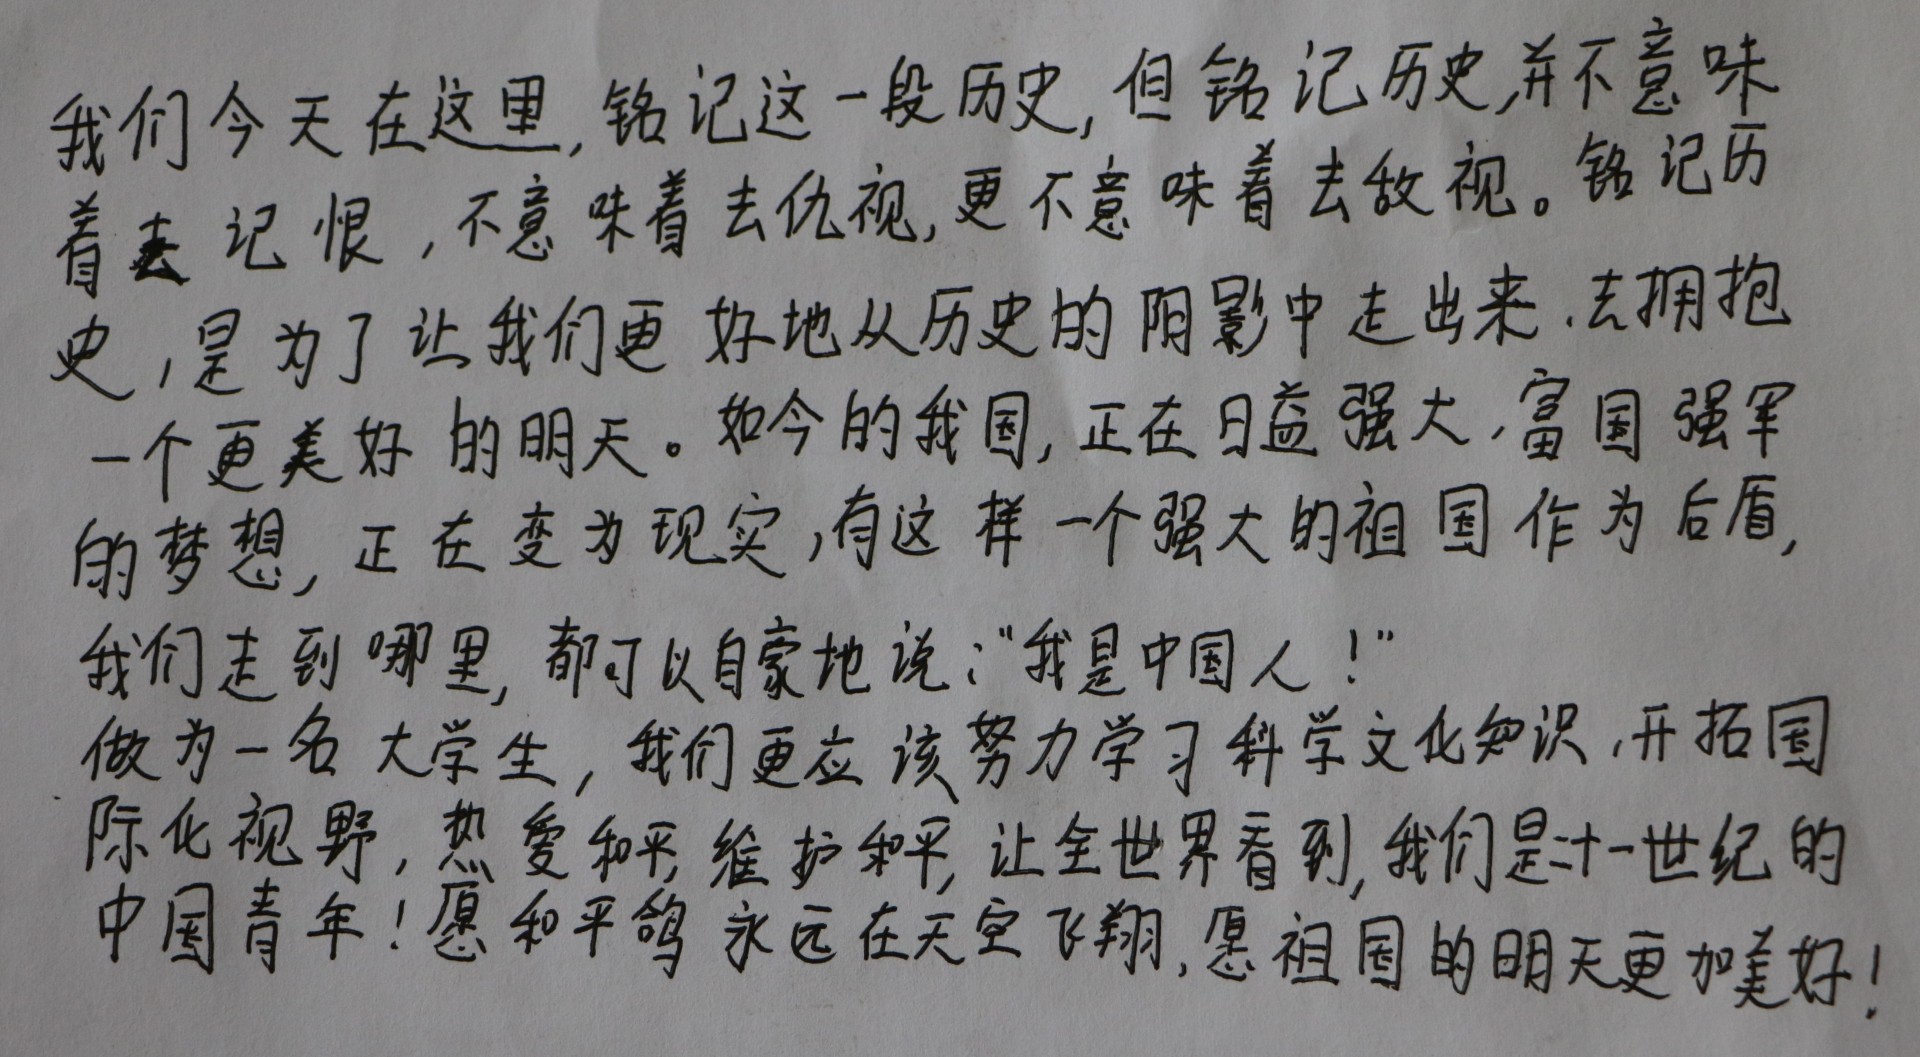 我们今天在这里,铭记这一段历史,但铭记历史,并不意味
着去记恨,不意味着去仇视,更不意味着去敌视。铭记历
史,是为了让我们更好地从历史的阴影中走出来,去拥抱
一个更美好的明天。如今的我国,正在日益强大,富国强军
的梦想,正在变为现实,有这样一个强大的祖国作为后盾,
我们走到哪里,都可以自豪地说:“我是中国人!”
做为一名大学生,我们更应该努力学习科学文化知识,开拓国
际化视野,热爱和平,维护和平,让全世界看到,我们是二十一世纪的
中国青年!愿和平鸽永远在天空飞翔,愿祖国的明天更加美好!